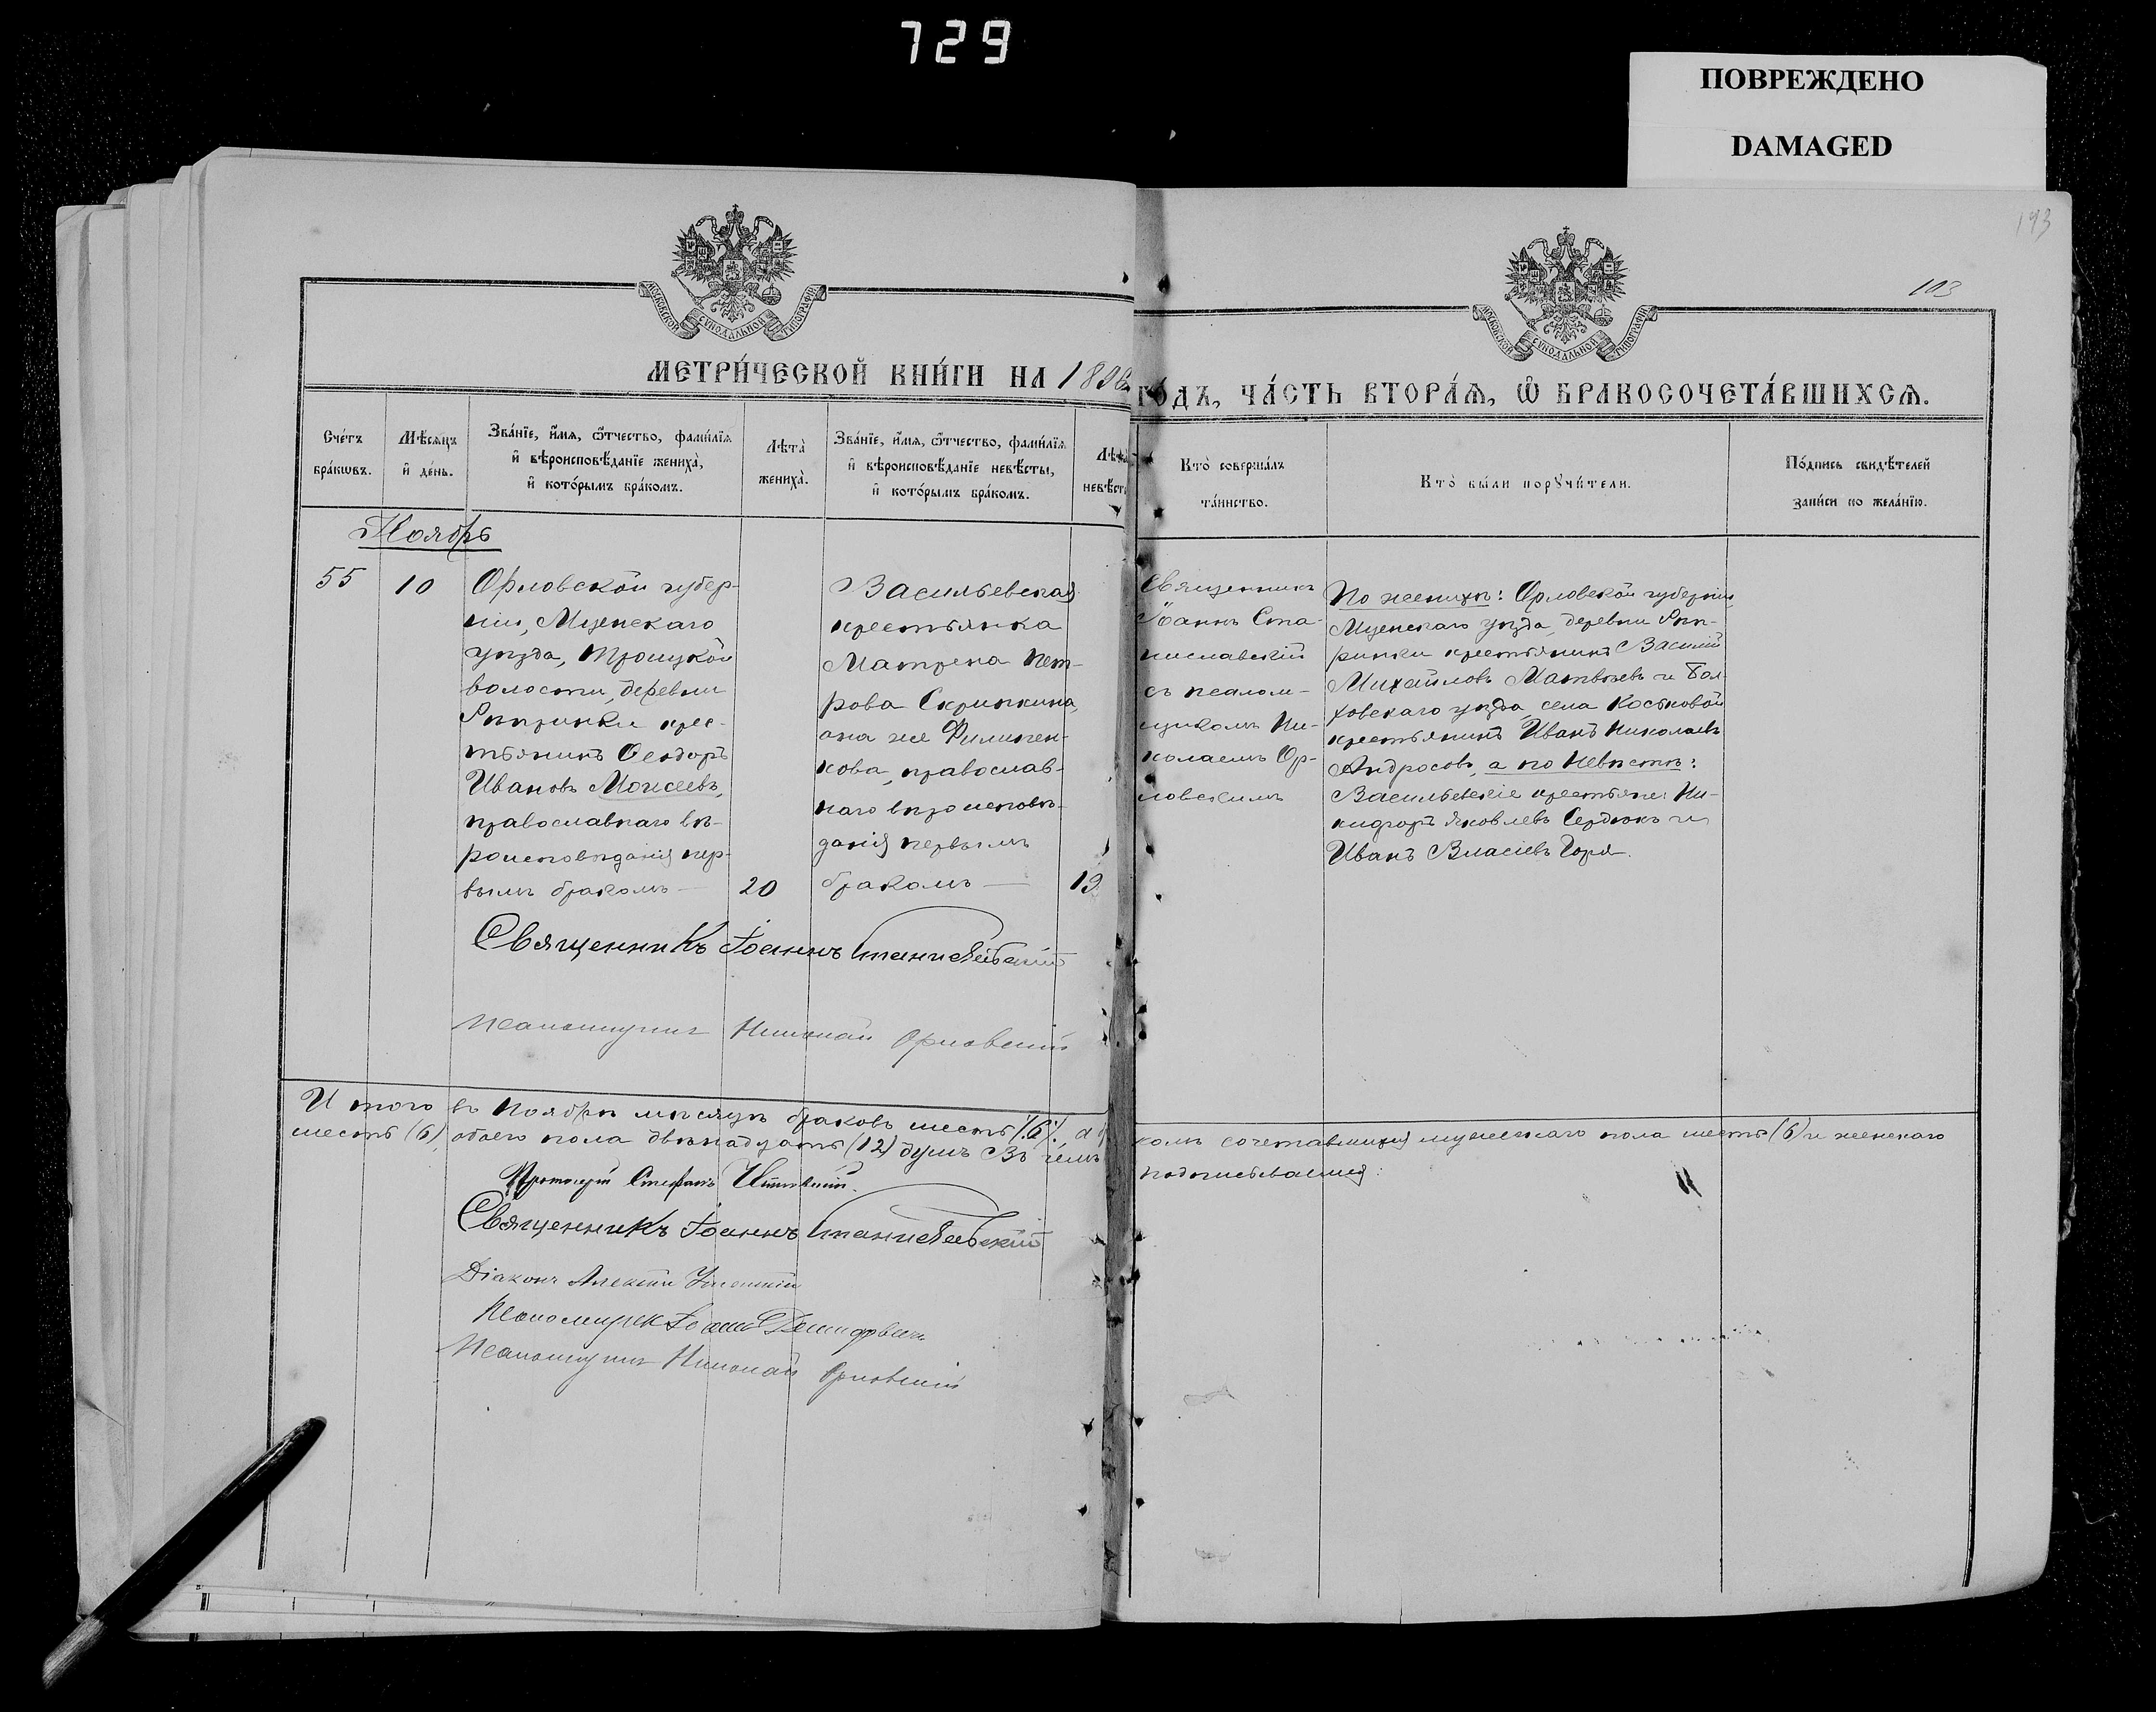 729
ПОВРЕЖДЕНО
DAMAGED
193
103
МОСКОВСКОЙ СѴНОДАЛЬНОЙ ТИПОГРАФІИ
МОСКОВСКОЙ СѴНОДАЛЬНОЙ ТИПОГРАФІИ
МЕТРИ́ЧЕСКОЙ КНИ́ГИ НА 1896
ГО́ДЪ, ЧА́СТЬ ВТОРА́Я, Ѽ БРАКОСОЧЕТА́ВШИХСЯ.
Сче́тъ
бра́кѡвъ.
Мѣ́сяцъ
и҆ де́нь.
Зва́нїе, и҆́мя, ѻ҆́тчество, фами́лїя
и҆ вѣроисповѣ́данїе жениха̀,
и҆ кото́рымъ бра́комъ.
Лѣта̀
жениха̀.
Зва́нїе, и҆́мя, ѻ҆́тчество, фами́лїя
и҆ вѣроисповѣ́данїе невѣ́сты,
и҆ кото́рымъ бра́комъ.
Лѣта̀
невѣ́сты
Кто̀ соверша́лъ
та́инство.
Кто̀ бы́ли порꙋчи́тели.
По́дпись свидѣ́телей
за́писи по жела́нїю.
Ноябрь
55
10
Орловской губер-
ніи, Мценскаго
уѣзда, Троицкой
волости, деревни
крес-
тьянинъ Ѳеодоръ
Ивановъ Моисеевъ,
православнаго вѣ-
роисповѣданія пер-
вымъ бракомъ —
20
Васильевская
крестьянка
Матрена Пет-
рова Скрипкина,
она же Филипен-
кова, православ-
наго вѣроисповѣ-
данія первымъ
бракомъ —
19
Священникъ
Іоаннъ Ста-
ниславскій
съ псалом-
щикомъ Ни-
колаемъ Ор-
ловскимъ
По женихѣ: Орловской губерніи,
Мценскаго уѣзда, деревни
крестьянинъ Василій
Михайловъ Матвѣевъ и Бол-
ховскаго уѣзда, села Коськовой
крестьянинъ Иванъ Николаевъ
Андросовъ, а по невѣстѣ:
Васильевскіе крестьяне: Ни-
кифоръ Яковлевъ Сердюкъ и
Иванъ Власіевъ Горя.
Священникъ Іоаннъ Станиславскій
Псаломщикъ Николай Орловскій
И того въ Ноябрѣ мѣсяцѣ браковъ шесть (6), а въ
комъ сочетавшихся мужескаго пола шесть (6) и женскаго
шесть (6), обоего пола двѣнадцать (12) душъ Въ чемъ
подписываемся:
Протоіерей Стефанъ
Священникъ Іоаннъ Станиславскій
Діаконъ Алексѣй
Псаломщикъ Іоаннъ
Псаломщикъ Николай Орловскій